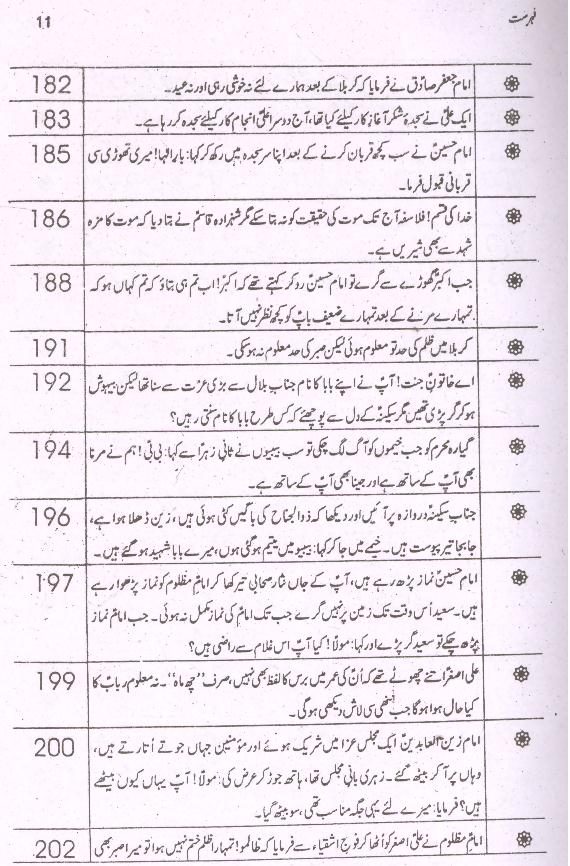 فہرست
11
امام جعفر صادقؑ نے فرمایا کہ کربلا کے بعد ہمارے لئے نہ خوشی رہی اور نہ عید۔
182
ایک علیؑ نے سجدۂ شکر آغازِ کار کیلئے کیا تھا، آج دوسرا علیؑ انجام کار کیلئے سجدہ کر رہا ہے۔
183
امام حسینؑ نے سب کچھ قربان کرنے کے بعد اپنا سر سجدہ میں رکھ کر کہا: بارالٰہا! میری تھوڑی سی
قربانی قبول فرما۔
185
خدا کی قسم! فلاسفہ آج تک موت کی حقیقت کو نہ بتا سکے مگر شہزادہ قاسمؑ نے بتا دیا کہ موت کا مزہ
شہد سے بھی شیریں ہے۔
186
جب اکبرؑ گھوڑے سے گرے تو امام حسینؑ رو کر کہتے تھے کہ اکبرؑ! اب تم ہی بتاؤ کہ تم کہاں ہو کہ
تمہارے مرنے کے بعد تمہارے ضعیف باپؑ کو کچھ نظر نہیں آتا۔
188
کربلا میں ظلم کی حد تو معلوم ہوئی لیکن صبر کی حد معلوم نہ ہو سکی۔
191
اے خاتونِؑ جنت! آپؑ نے اپنے بابا کا نام جناب بلال سے بڑی عزت سے سنا تھا لیکن بیہوش
ہو کر گر پڑی تھیں مگر سکینہؑ کے دل سے پوچھئے کہ کس طرح بابا کا نام سنتی رہیں؟
192
گیارہ محرم کو جب خیموں کو آگ لگ چکی تو سب بیبیوں نے ثانی زہراؑ سے کہا: بی بیؑ! ہم نے مرنا
بھی آپؑ کے ساتھ ہے اور جینا بھی آپؑ کے ساتھ ہے۔
194
جناب سکینہؑ دروازہ پر آئیں اور دیکھا کہ ذوالجناح کی باگیں کٹی ہوئی ہیں، زین ڈھلا ہوا ہے،
جابجا تیر پیوست ہیں۔ خیمے میں جا کر کہا: بیبیو میں یتیم ہو گئی ہوں، میرے بابا شہید ہو گئے ہیں۔
196
امام حسینؑ نماز پڑھ رہے ہیں، آپؑ کے جاں نثار صحابی تیر کھا کر امامِ مظلوم کو نماز پڑھوا رہے
ہیں۔ سعید اُس وقت تک زمین پر نہیں گرے جب تک امامؑ کی نماز مکمل نہ ہوئی۔ جب امامؑ نماز
پڑھ چکے تو سعید گر پڑے اور کہا: مولاؑ! کیا آپؑ اس غلام سے راضی ہیں؟
197
علی اصغرؑ اتنے چھوٹے تھے کہ اُنؑ کی عمر میں برس کا لفظ بھی نہیں، صرف ”چھ ماہ“۔ نہ معلوم ربابؑ کا
کیا حال ہوا ہو گا جب ننھی سی لاش دیکھی ہو گی۔
199
امام زین العابدینؑ ایک مجلس عزا میں شریک ہوئے اور مؤمنین جہاں جوتے اُتارتے ہیں،
وہاں پر آ کر بیٹھ گئے۔ زہری بانی مجلس تھا، ہاتھ جوڑ کر عرض کی: مولاؑ! آپؑ یہاں کیوں بیٹھے
ہیں؟ فرمایا: میرے لئے یہی جگہ مناسب تھی، سو بیٹھ گیا۔
200
امامِ مظلوم نے علی اصغرؑ کو اُٹھا کر فوجِ اشقیاء سے فرمایا کہ ظالمو! تمہارا ظلم ختم نہیں ہوا تو میرا صبر بھی
202